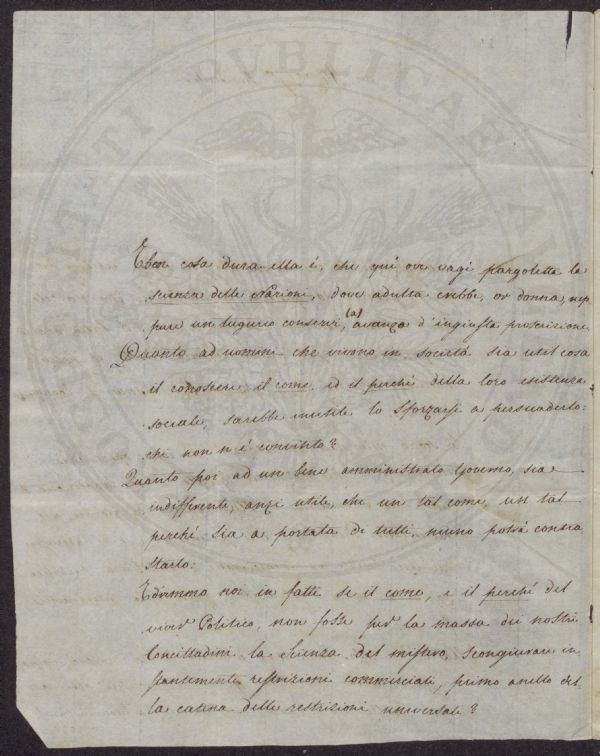 Ebben cosa dura ella é, che quí ove vagí pargoletta la
scienza delle Nazioni, dove adulta crebbe, or donna, nep
pure un tugurio conservi, (a) avanzo d'ingiusta proscrizione
Quanto ad uomini che vivono in società sia util cosa
il conoscere il come, ed il perchè della loro esistenza
sociale, sarebbe inutile lo sforzarsi a persuaderlo:
chi non n'è convinto?
Quanto poi ad un bene amministrato Governo, sia
indifferente, anzi utile, che un tal come, un tal
perchè sia a portata di tutti, niuno potrà contra
starlo:
Edvremmo noi in fatti se il come, e il perchè del
viver Politico, non fosse per la massa dei nostri
Concittadini la Scienza del mistero, scongiurare in
stantemente restrizioni commerciali, primo anello del
la catena delle restrizioni universali?